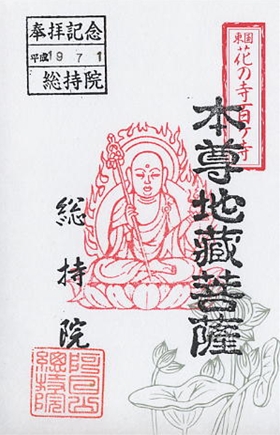 奉拝記念
平成19 7 1
総持院
東国
花の寺百ヶ寺
本尊地蔵菩薩
総持院